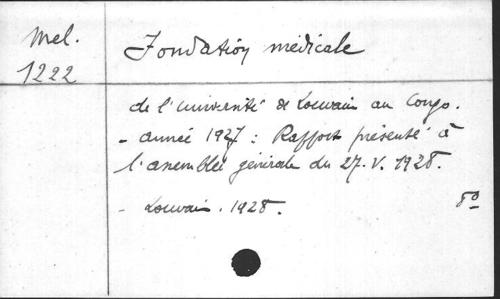 Mel.
1222
Fondation médicale
de l'université de Louvain au Congo.
- année 1927 : Rapport présenté à
l'assemblée générale du 27.V.1928.
- Louvain. 1928.
8º